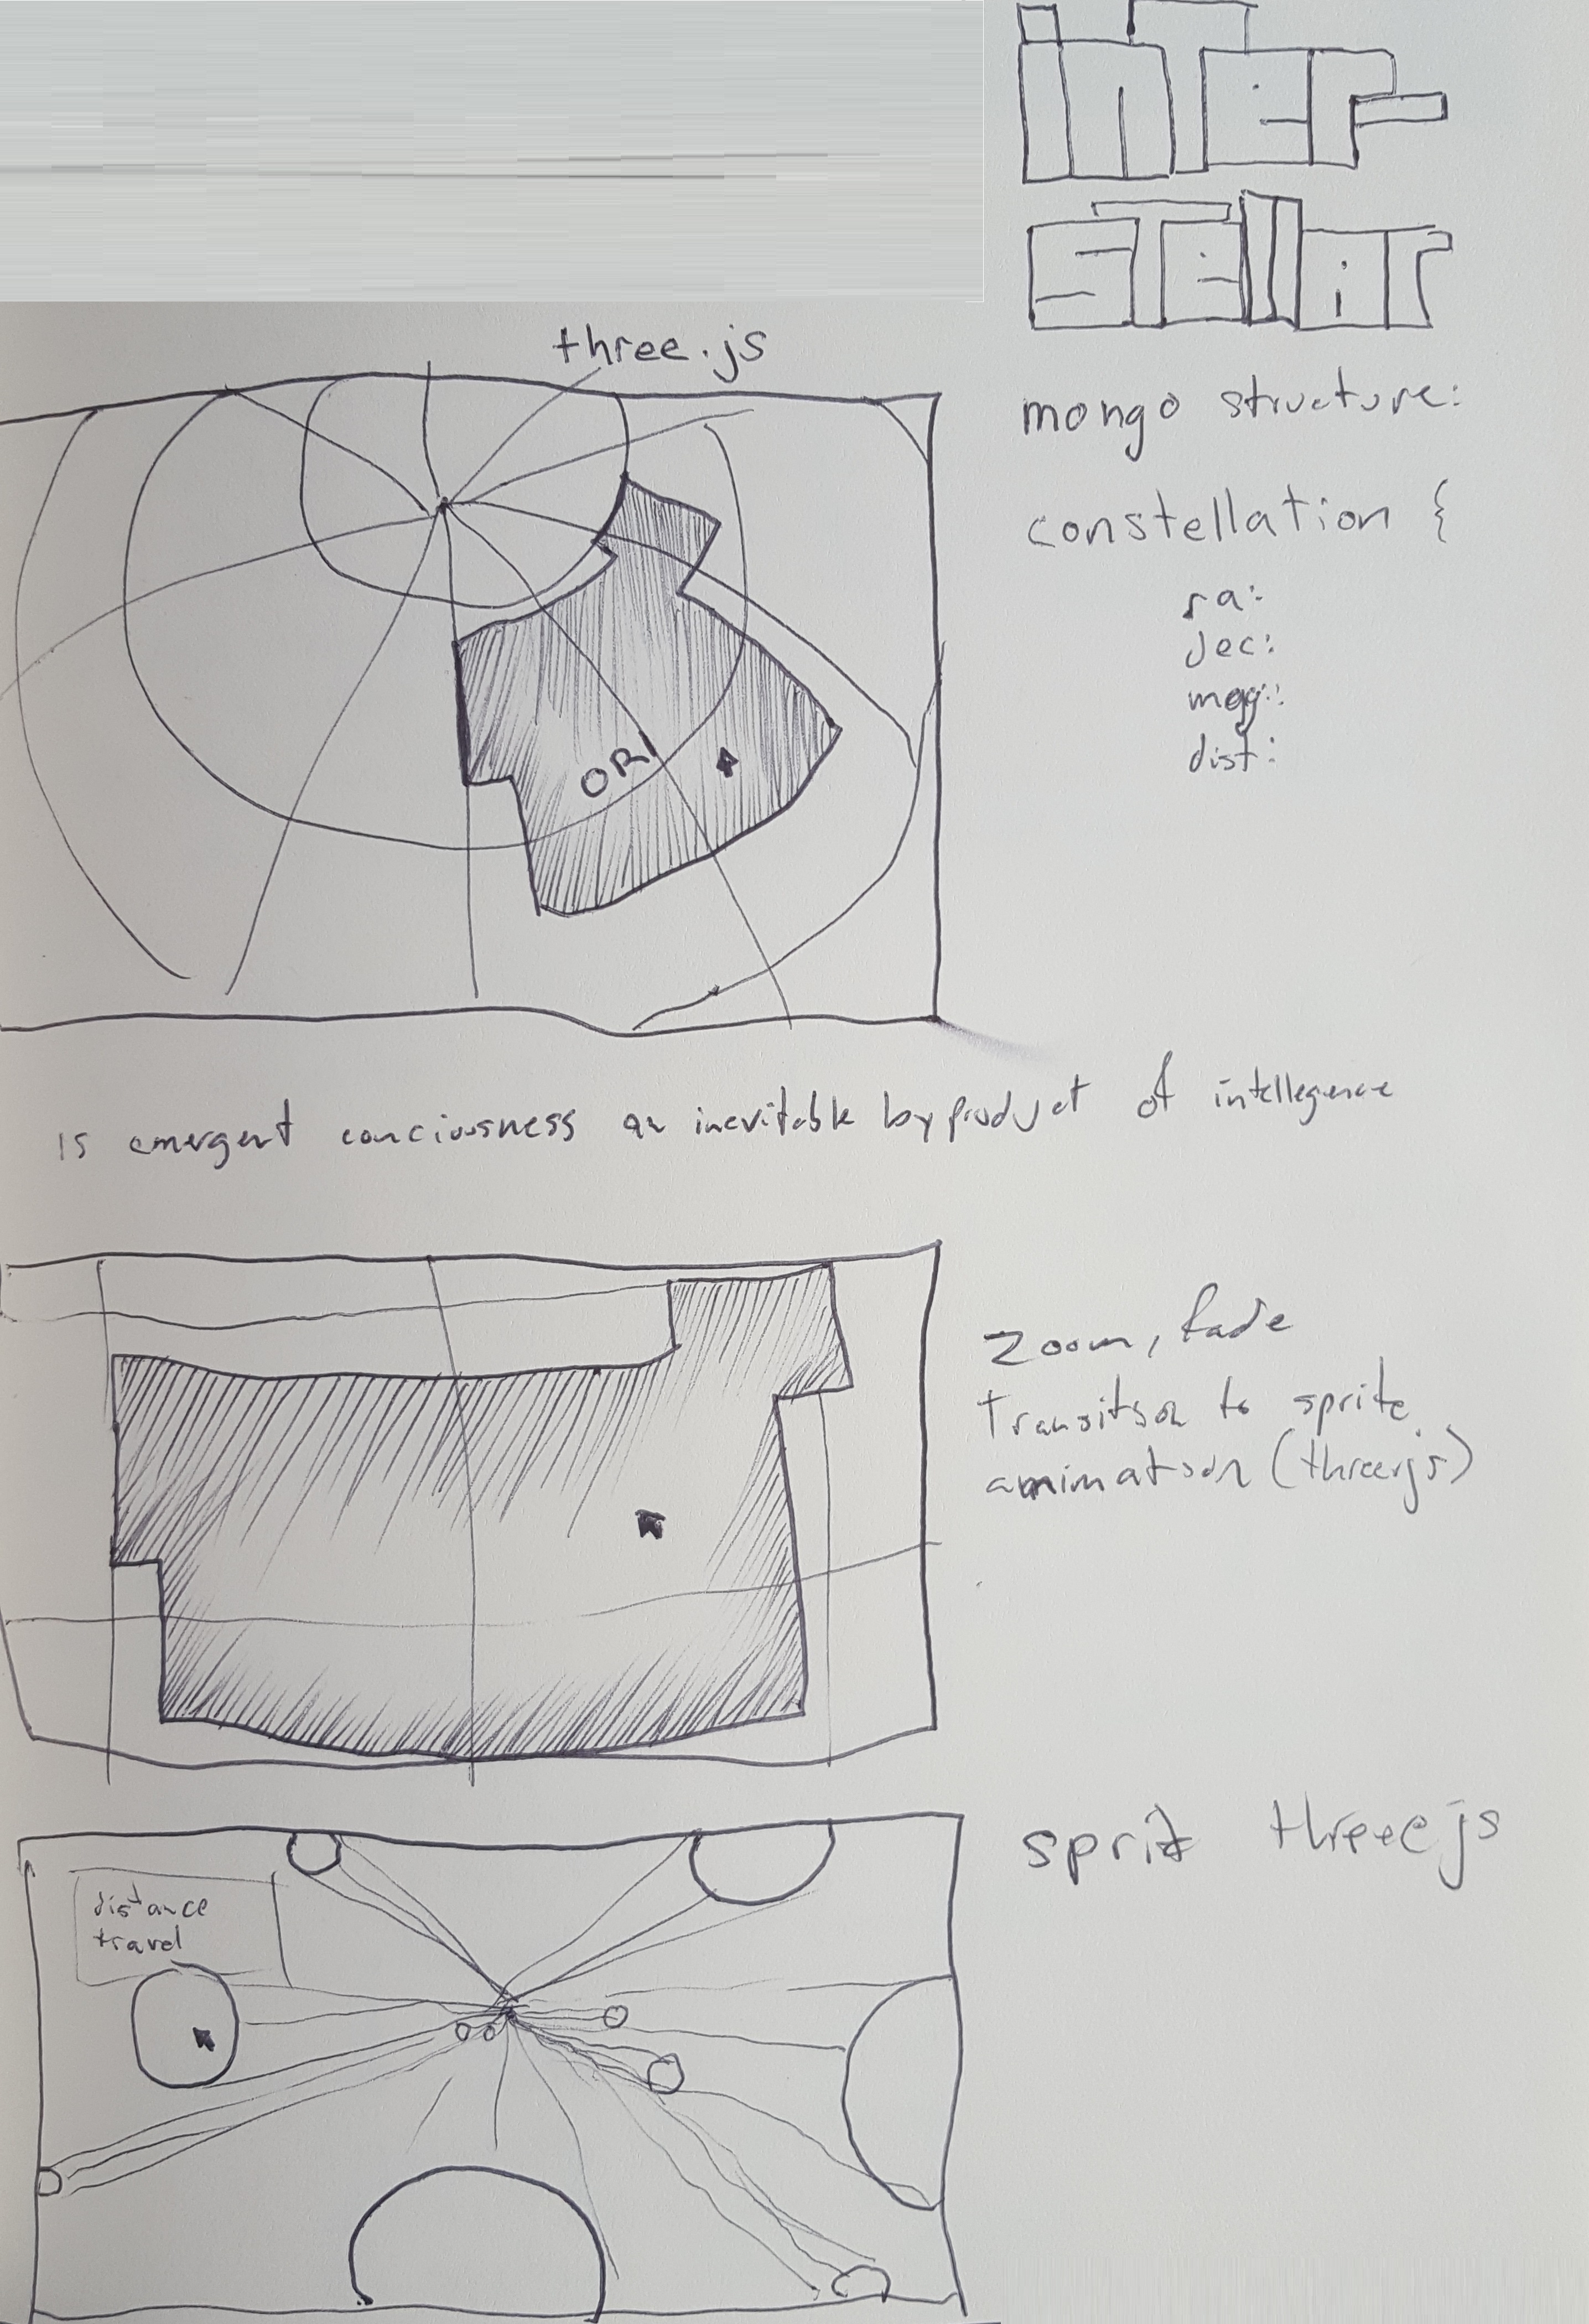 inTer-
STellar
three.js
mongo structure:
constellation {
ra:
dec:
mag:
dist:
ORI
is emergent conciousness an inevitable byproduct of intellegence
Zoom, fade
Transition to sprite
animation (threejs)
threeejs
distance
travel